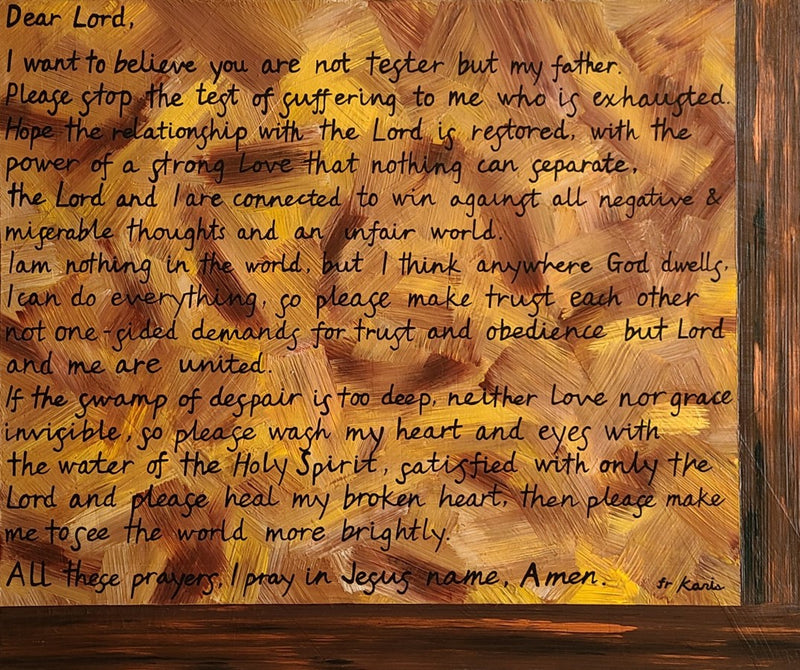 Dear Lord,
I want to believe you are not tester but my father.
Please stop the test of suffering to me who is exhausted.
Hope the relationship with the Lord is restored, with the
power of a strong Love that nothing can separate,
the Lord and I are connected to win against all negative &
miserable thoughts and an unfair world.
I am nothing in the world, but I think anywhere God dwells,
I can do everything, so please make trust each other
not one-sided demands for trust and obedience but Lord
and me are united.
If the swamp of despair is too deep, neither Love nor grace
invisible, so please wash my heart and eyes with
the water of the Holy Spirit, satisfied with only the
Lord and please heal my broken heart, then please make
me to see the world more brightly.
All these prayers, I pray in Jesus name, Amen.
fr Karis